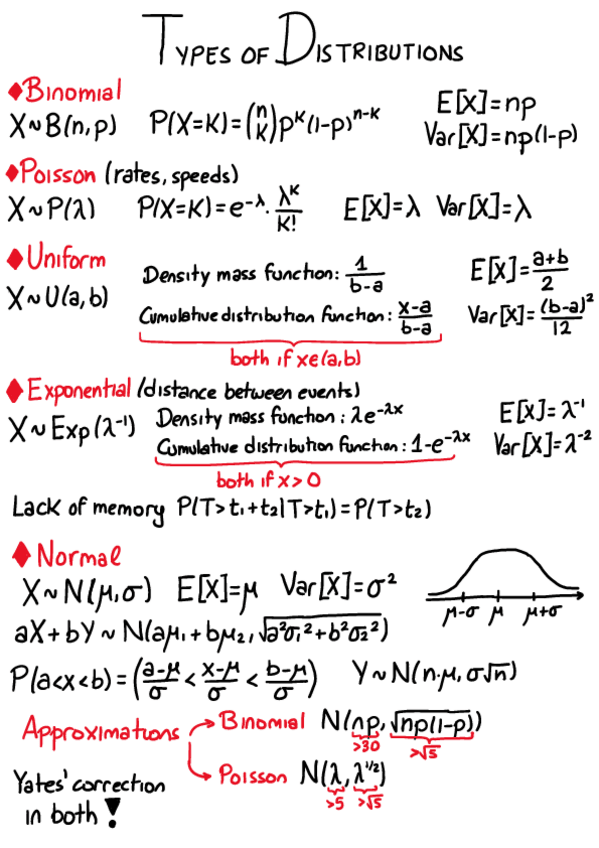 TYPES OF DISTRIBUTIONS
♦Binomial
X~B(n,p) P(X=K)=(n K)p^K(1-p)^n-K E[X]=np
Var[X]=np(1-p)
♦Poisson (rates, speeds)
X~P(λ) P(X=K)=e^-λ·λ^K/K! E[X]=λ Var[X]=λ
♦Uniform
X~U(a,b) Density mass function: 1/b-a E[X]=a+b/2
Cumulative distribution function: x-a/b-a Var[X]=(b-a)²/12
both if x∈(a,b)
♦Exponential (distance between events)
X~Exp(λ⁻¹) Density mass function: λe^-λx E[X]=λ⁻¹
Cumulative distribution function: 1-e^-λx Var[X]=λ⁻²
both if x>0
Lack of memory P(T>t₁+t₂|T>t₁)=P(T>t₂)
♦Normal
X~N(μ,σ) E[X]=μ Var[X]=σ²
μ-σ μ μ+σ
aX+bY~N(aμ₁+bμ₂,√a²σ₁²+b²σ₂²)
P(a<x<b)=(a-μ/σ<x-μ/σ<b-μ/σ) Y~N(n·μ,σ√n)
Approximations → Binomial N(np,√np(1-p))
>30 >√5
→ Poisson N(λ,λ^1/2)
>5 >√5
Yates' correction
in both!